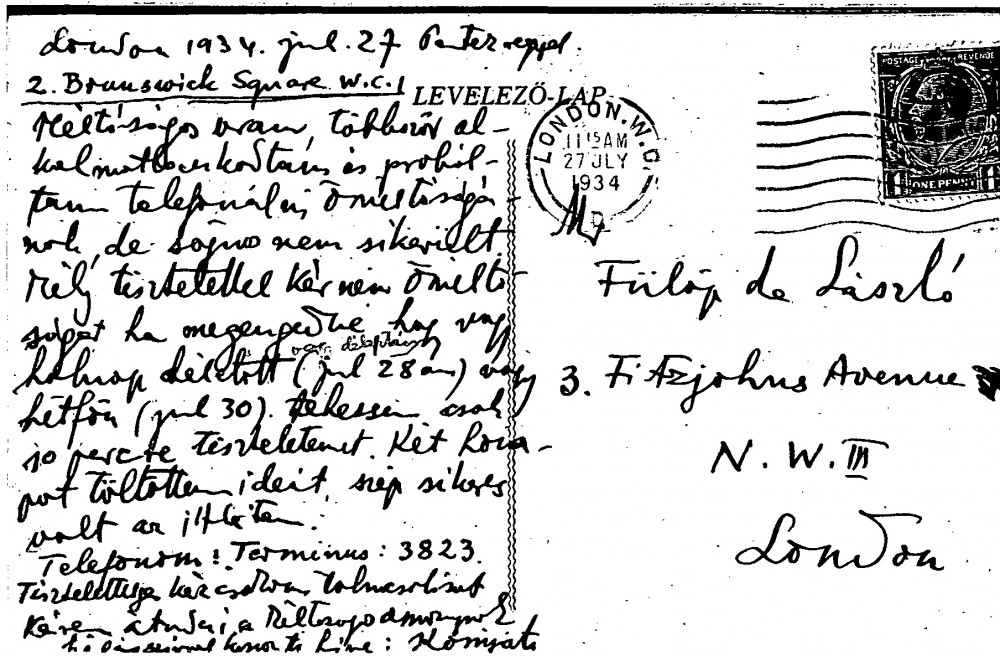 London 1934. jul. 27 Péntek reggel.
2. Brunswick Square W.C.1
LEVELEZŐ-LAP
Méltóságos uram, többször al-
kalmatlankodtam és próbál-
tam telefonálni Őméltóságá-
nak, de sajnos nem sikerült
Mély tisztelettel kérném Őméltó-
ságát ha megengedné hogy vagy
vagy délután
holnap délelőtt (jul 28 án) vagy
hétfőn (jul 30). tehessem csak
10 percre tiszteletemet. Két hóna-
pot töltöttem, szép sikeres
volt az
Telefonom: Terminus: 3823.
kézcsókom tolmácsolását
Kérem a Méltóságos
híve: Komjáti
LONDON. W.C.
11 15 AM
27 JLY
1934
POSTAGE REVENUE
ONE PENNY
Fülöp de László
3. Fitzjohns Avenue
N. W. III
London